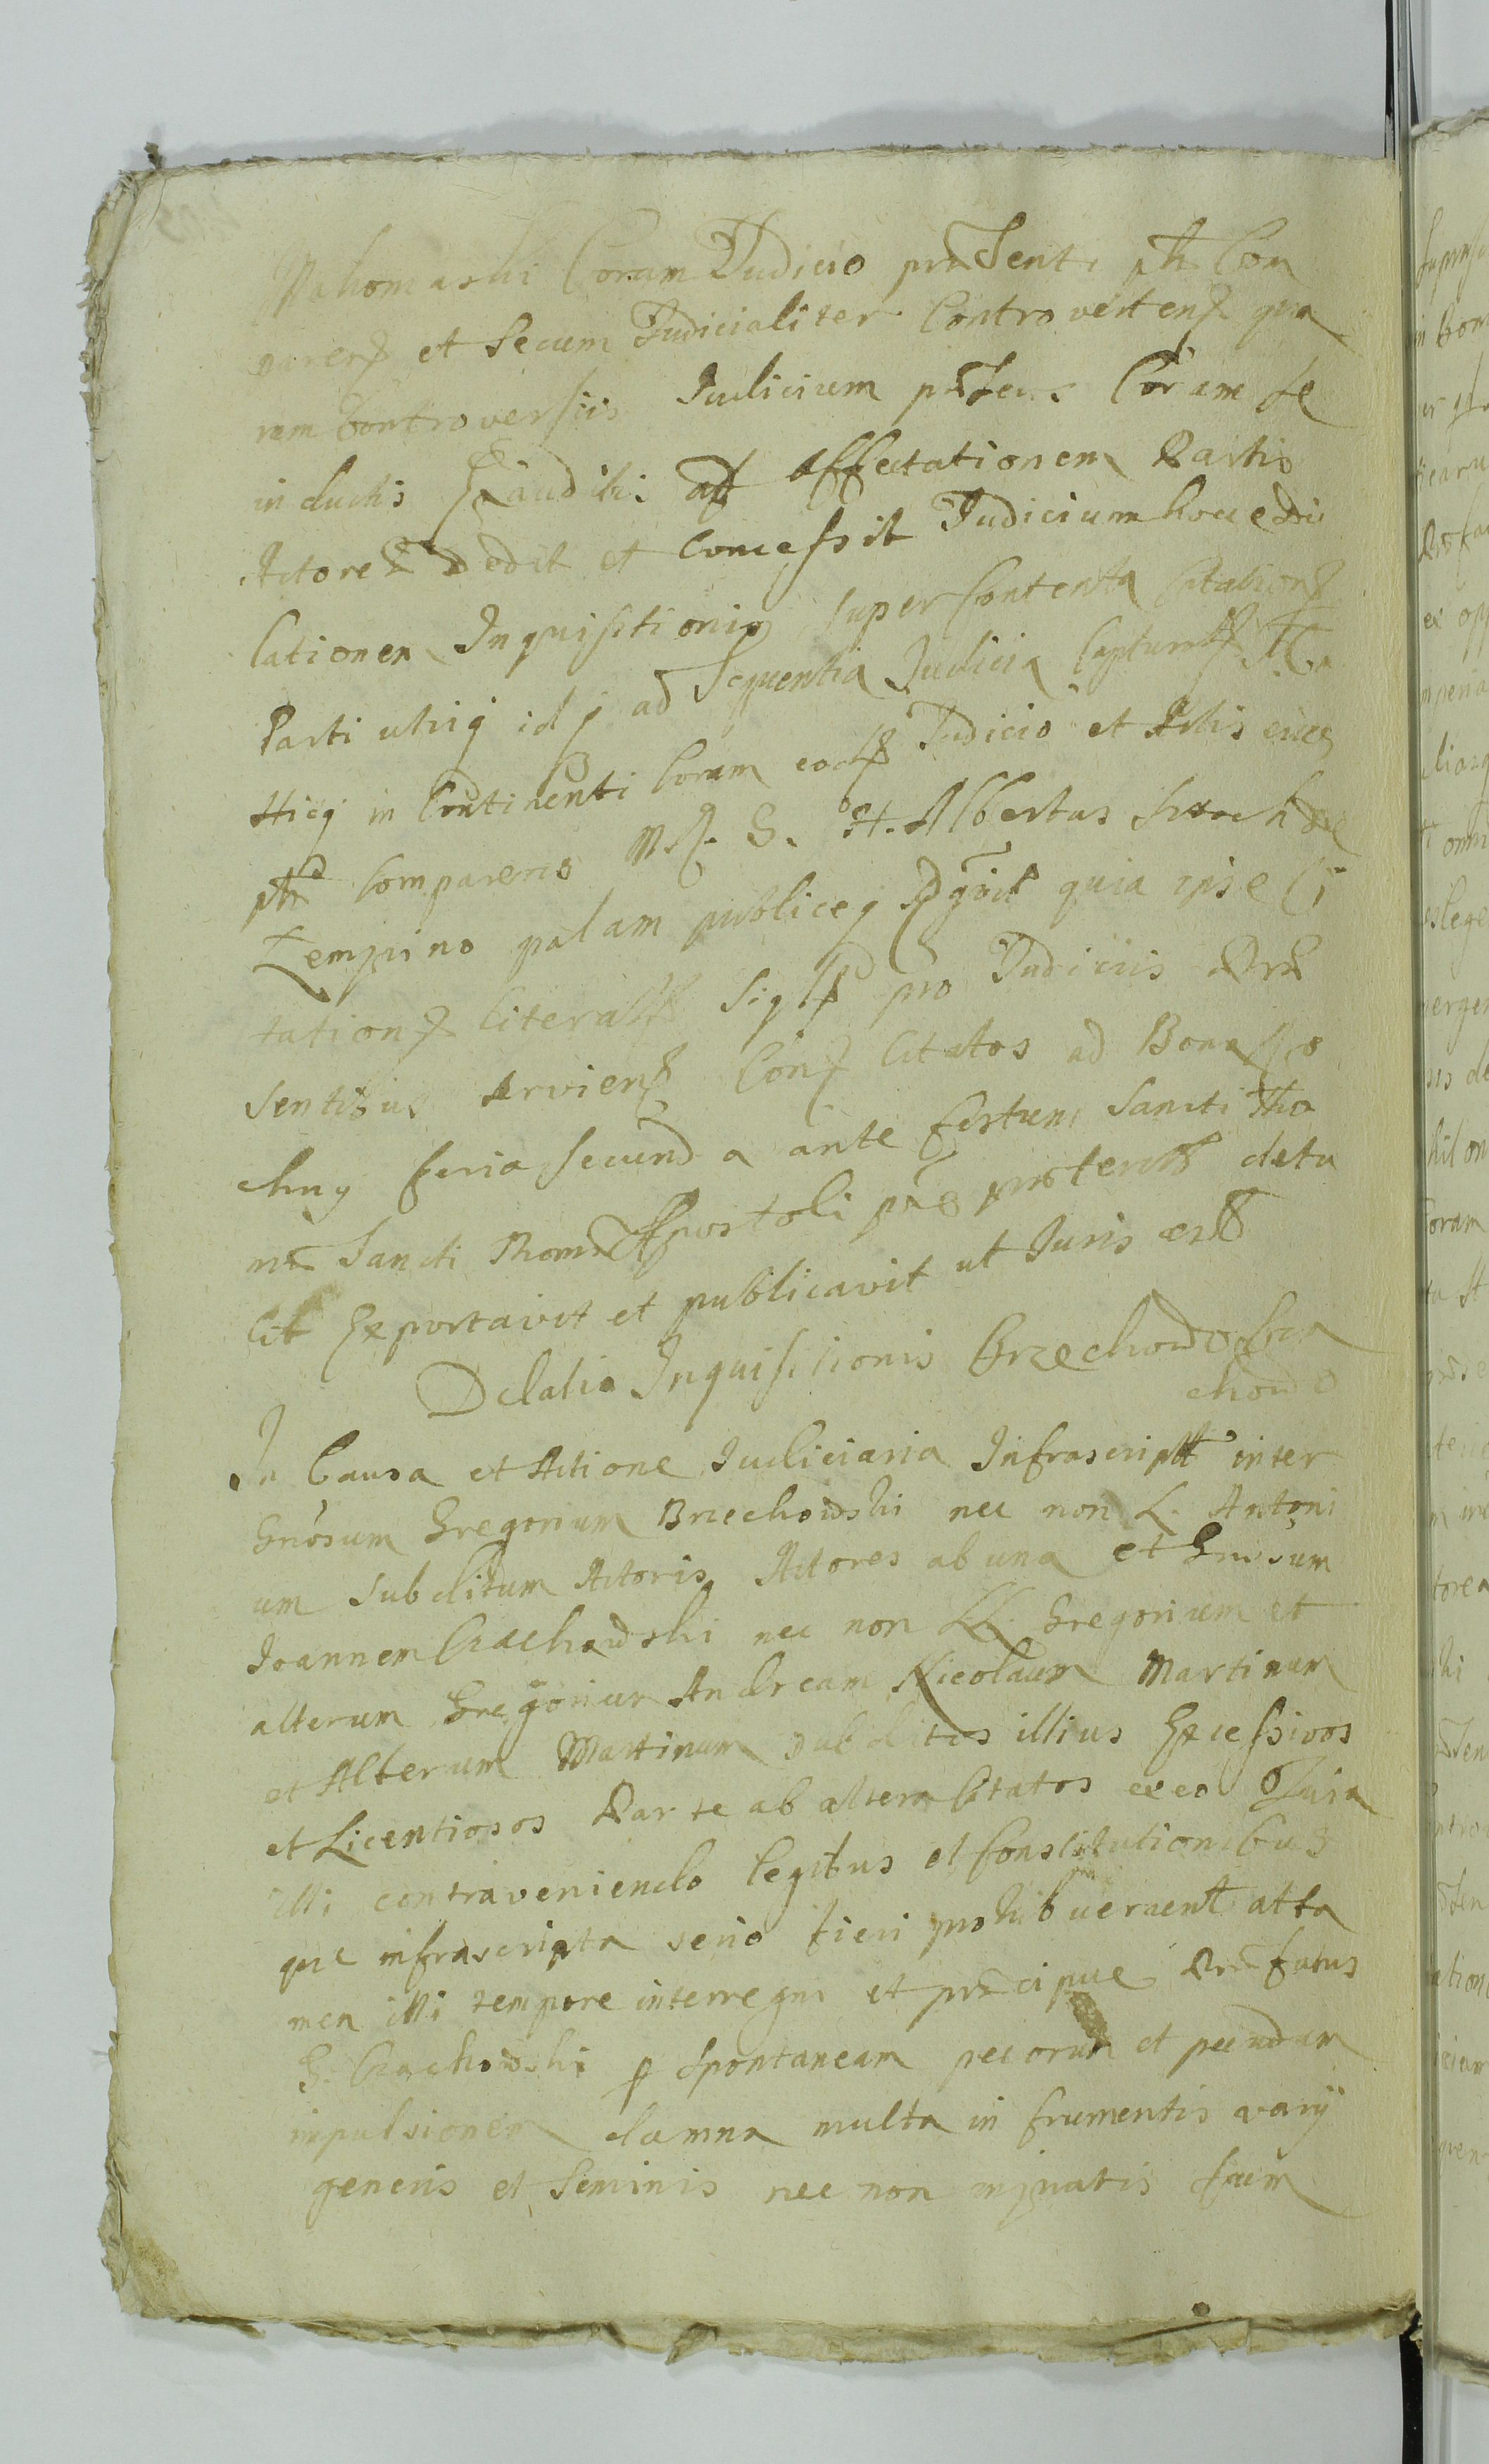 Pakomaski Coram Judicio præsenti ptr Com
paren et secum Judicialiter Controverten qua
rum Controversiis Judicium ptens Coram se
inductis Exauditis ad affectationem Partis
Actoreæ dedit et concessit Judicium hoc edu
cationem Inquisitionis super contenta Citation
Parti utriq idq ad sequentia Judicia Capturæ
Hicq in Continenti Coram eod Judicio et Actis eius
ptr Comparens M. G. H. Albertus
Lempino palam publiceq quia ipse Ci
tation literal pro Judiciis Præ
sentibus servien Con Citatos ad Bona
feria secunda ante festum Sancti Tho
mæ Sancti Thomæ Apostoli pro detu
lit Exportavit et publicavit ut Juris est
Delatio Inquisitionis Brzechowsko Cza
chows
In Causa et Actione Judiciaria Infrascript inter
Gnosum Gregorium Brzechowski nec non L. Antoni
um subditum Actoris Actores ab una et Gnosum
Joannem Czachowski nec non LL. Gregorium et
alterum Gregorium Andream Nicolaum Martinum
et Alterum Martinum subditos illius Excessivos
et Licentiosos Parte ab altera Citatos ex eo Quia
illi contraveniendo legibus et Constitutionibus
quæ infrascripta serio fieri prohibuerunt atta
men illi tempore interregni et præcipue Præfatus
G. Czachowski p spontaneam pecorum et pecudum
impulsionem damna multa in frumentis varij
generis et seminis nec non in pratis fœum